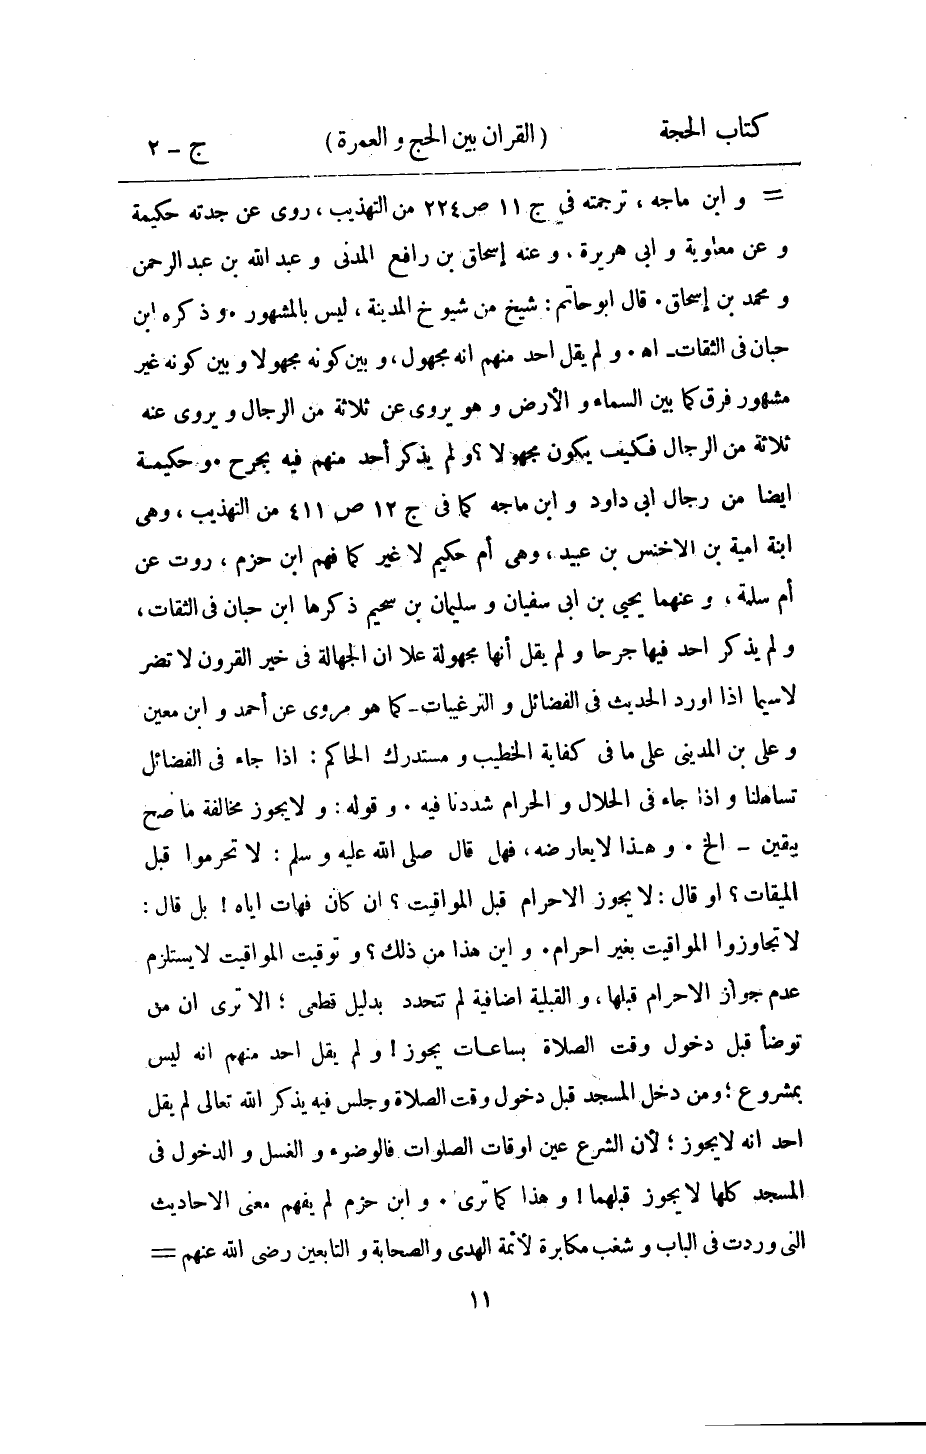 كتاب الحجة (القران بين الحج و العمرة) ج - ٢
= و ابن ماجه ، ترجمته في ج ١١ ص ٢٢٤ من التهذيب ، روى عن جدته حكيمة
و عن معاوية و ابى هريرة ، و عنه إسحاق بن رافع المدنى و عبد الله بن عبد الرحمن
و محمد بن إسحاق . قال ابو حاتم : شيخ من شيوخ المدينة ، ليس بالمشهور . و ذكره ابن
حبان فى الثقات - اه . و لم يقل احد منهم انه مجهول ، و بين كونه مجهولا و بين كونه غير
مشهور فرق كما بين السماء و الأرض و هو يروى عن ثلاثة من الرجال و يروى عنه
ثلاثة من الرجال فكيف يكون مجهولا ؟ و لم يذكر أحد منهم فيه بجرح . و حكيمة
ايضا من رجال ابى داود و ابن ماجه كما فى ج ١٢ ص ٤١١ من التهذيب ، وهى
ابنة امية بن الاخنس بن عبيد ، وهى أم حكيم لا غير كما فهم ابن حزم ، روت عن
أم سلمة ، و عنهما يحيى بن ابى سفيان و سليمان بن سحيم ذكرها ابن حبان فى الثقات ،
و لم يذكر احد فيها جرحا و لم يقل أنها مجهولة علا ان الجهالة فى خير القرون لا تضر
لاسيما اذا اورد الحديث فى الفضائل و الترغيبات - كما هو مروى عن أحمد و ابن معين
و على بن المدينى على ما فى كفاية الخطيب و مستدرك الحاكم : اذا جاء فى الفضائل
تساهلنا و اذا جاء فى الحلال و الحرام شددنا فيه . و قوله : و لايجوز مخالفة ما صح
بيقين - الخ . و هذا لايعارضه ، فهل قال صلى الله عليه و سلم : لا تحرموا قبل
الميقات ؟ او قال : لا يجوز الاحرام قبل المواقيت ؟ ان كان فهات اياه ! بل قال :
لا تجاوزوا المواقيت بغير احرام . و اين هذا من ذلك ؟ و توقيت المواقيت لا يستلزم
عدم جواز الاحرام قبلها ، و القبلية اضافية لم تتحدد بدليل قطعى ؛ الا ترى ان من
توضأ قبل دخول وقت الصلاة بساعات يجوز ! و لم يقل احد منهم انه ليس
بمشروع ؛ ومن دخل المسجد قبل دخول وقت الصلاة وجلس فيه يذكر الله تعالى لم يقل
احد انه لايجوز ؛ لأن الشرع عين اوقات الصلوات فالوضوء و الغسل و الدخول فى
المسجد كلها لا يجوز قبلهما ! و هذا كما ترى . و ابن حزم لم يفهم معنى الاحاديث
التى وردت فى الباب و شغب مكابرة لأئمة الهدى و الصحابة و التابعين رضى الله عنهم =
١١